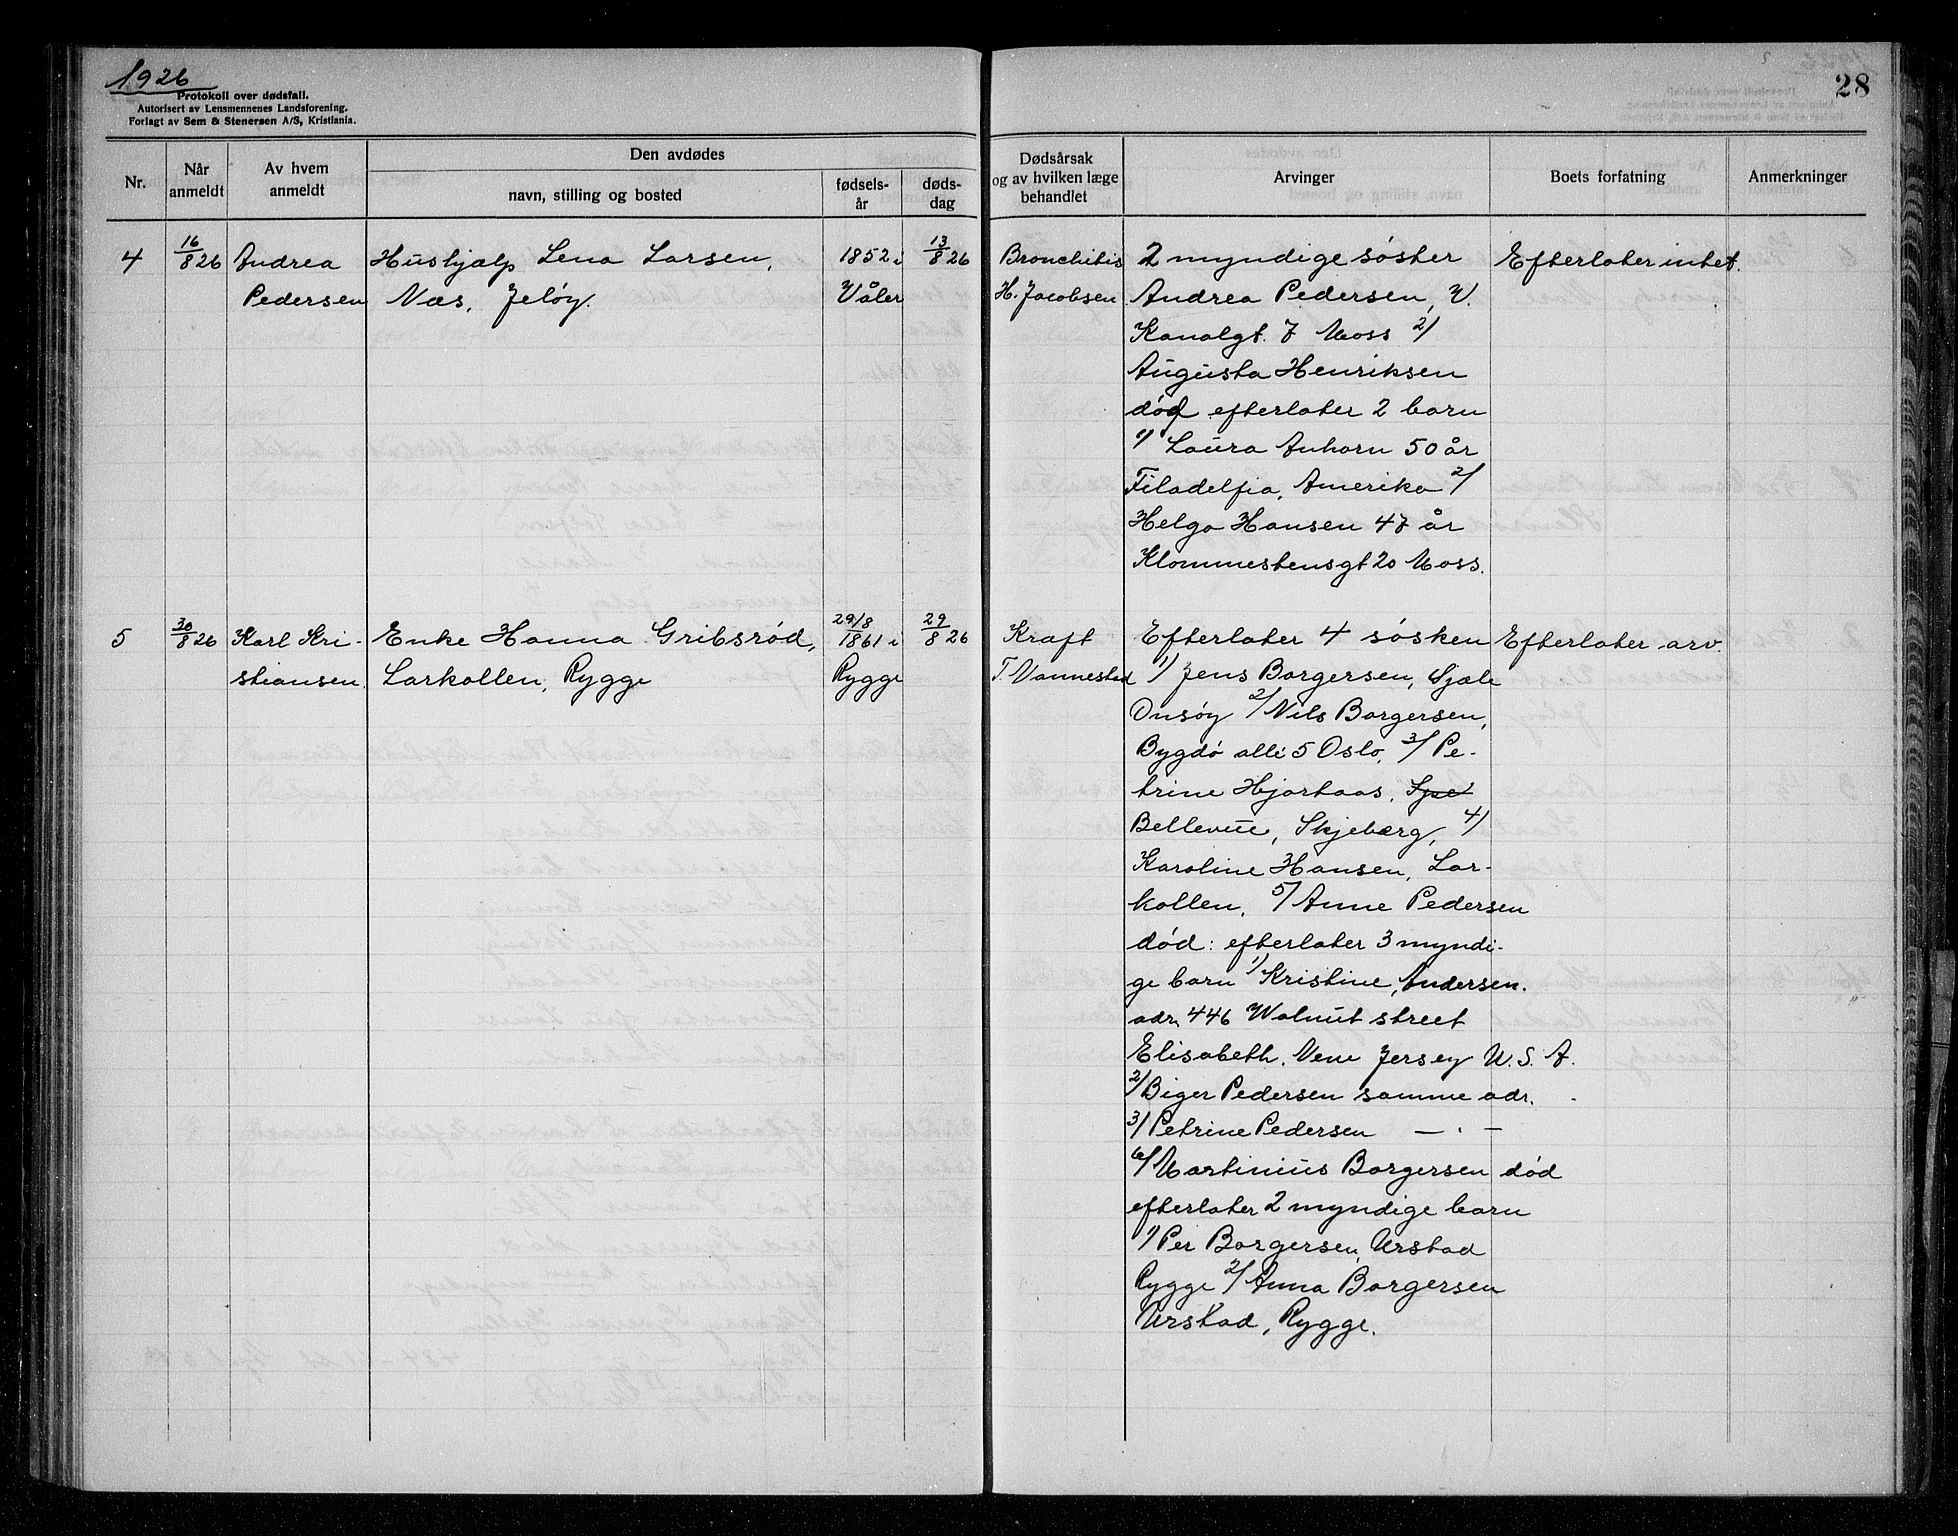 1926
Protokoll over dødsfall.
Autorisert av Lensmennenes Landsforening.
Forlagt av Sem & Stenersen A/S, Kristiania.
28
Nr.
Når anmeldt
Av hvem anmeldt
Den avdødes
navn, stilling og bosted
fødsels-
år
døds-
dag
Dødsårsak
og av hvilken læge
behandlet
Arvinger
Boets forfatning
Anmerkninger
4
16/8 26
Andrea
Pedersen
Hushjælp Lena Larsen,
Næs, Jeløy.
1852 i
Våler
13/8 26
Bronchitis
H. Jacobsen
2 myndige søster
Andrea Pedersen, V.
Kanalgt. 7 Moss 2/
Augusta Henriksen
død efterlater 2 barn
1/ Laura Anhorn 50 år
Filadelfia, Amerika 2/
Helga Hansen 47 år
Klommestensgt 20 Moss.
Efterlater intet.
5
30/8 26
Karl Kri-
stiansen.
Enke Hanna Gribsrød,
Larkollen, Rygge
29/8
1861 i
Rygge
29/8 26
Kræft
T. Vannestad
Efterlater 4 søsken
1/ Jens Borgersen, Sjæle
Onsøy 2/ Nils Borgersen,
Bygdø allé 5 Oslo, 3/ Pe-
trine Hjortaas,
Bellevue, Skjebærg, 4/
Karoline Hansen, Lar-
kollen, 5/ Anne Pedersen
død: efterlater 3 myndi-
ge barn 1/ Kristine Andersen.
adr. 446 Walnut street
Elisabeth. New Jersey U. S. A.
2/ Biger Pedersen samme adr.
3/ Petrine Pedersen — " —
6/ Martinius Borgersen død
efterlater 2 myndige barn
1/ Per Borgersen, Urstad
Rygge 2/ Anna Borgersen
Urstad, Rygge.
Efterlater arv.